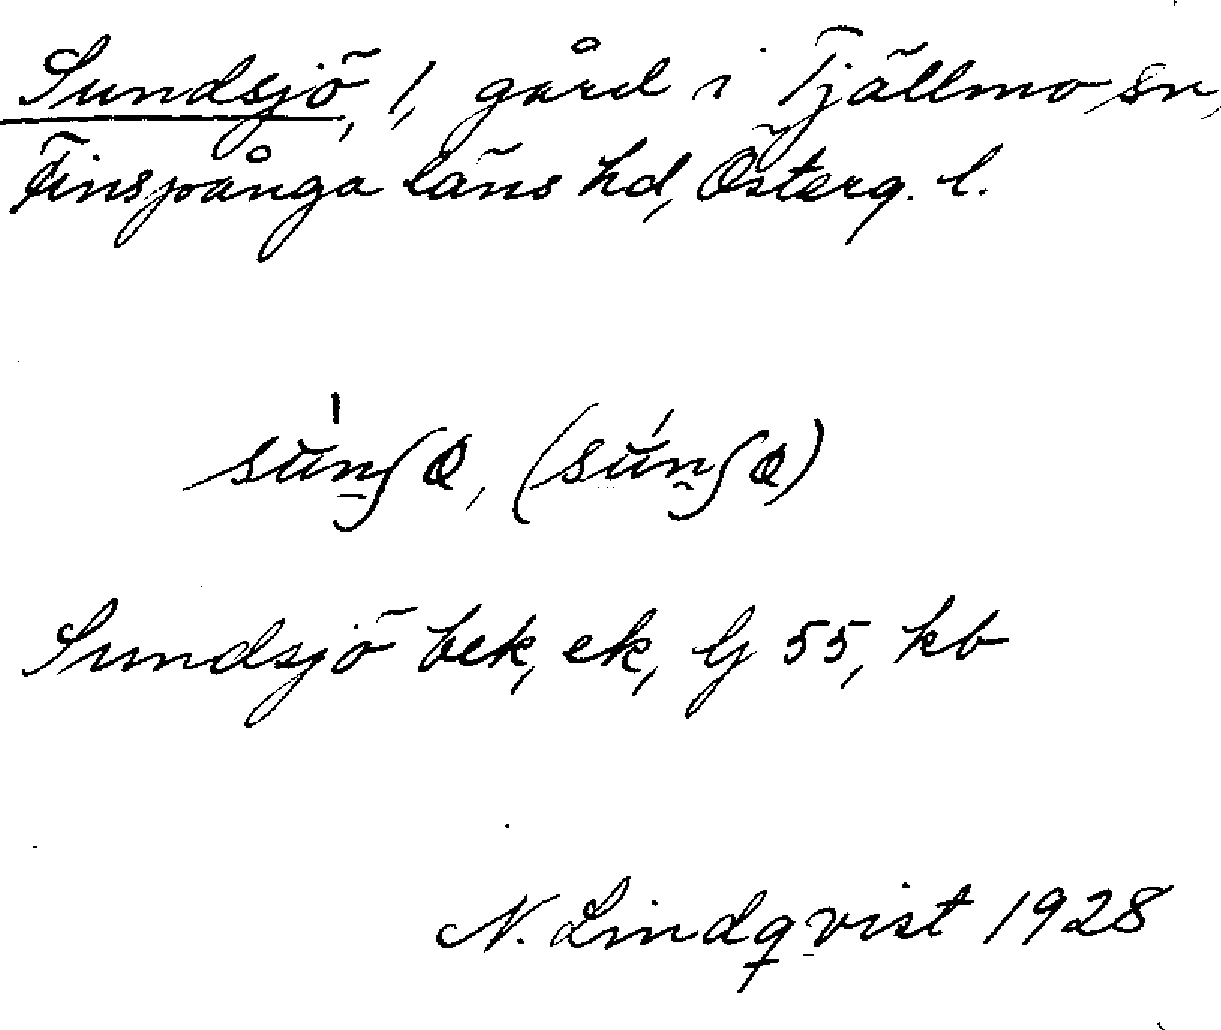 Sundsjö, 1, gård i Tjällmo sn,
Finspånga läns hd, Österg. l.
sùnʃø, (súnʃø)
Sundsjö bek, ek, G 55, kb
N. Lindqvist 1928